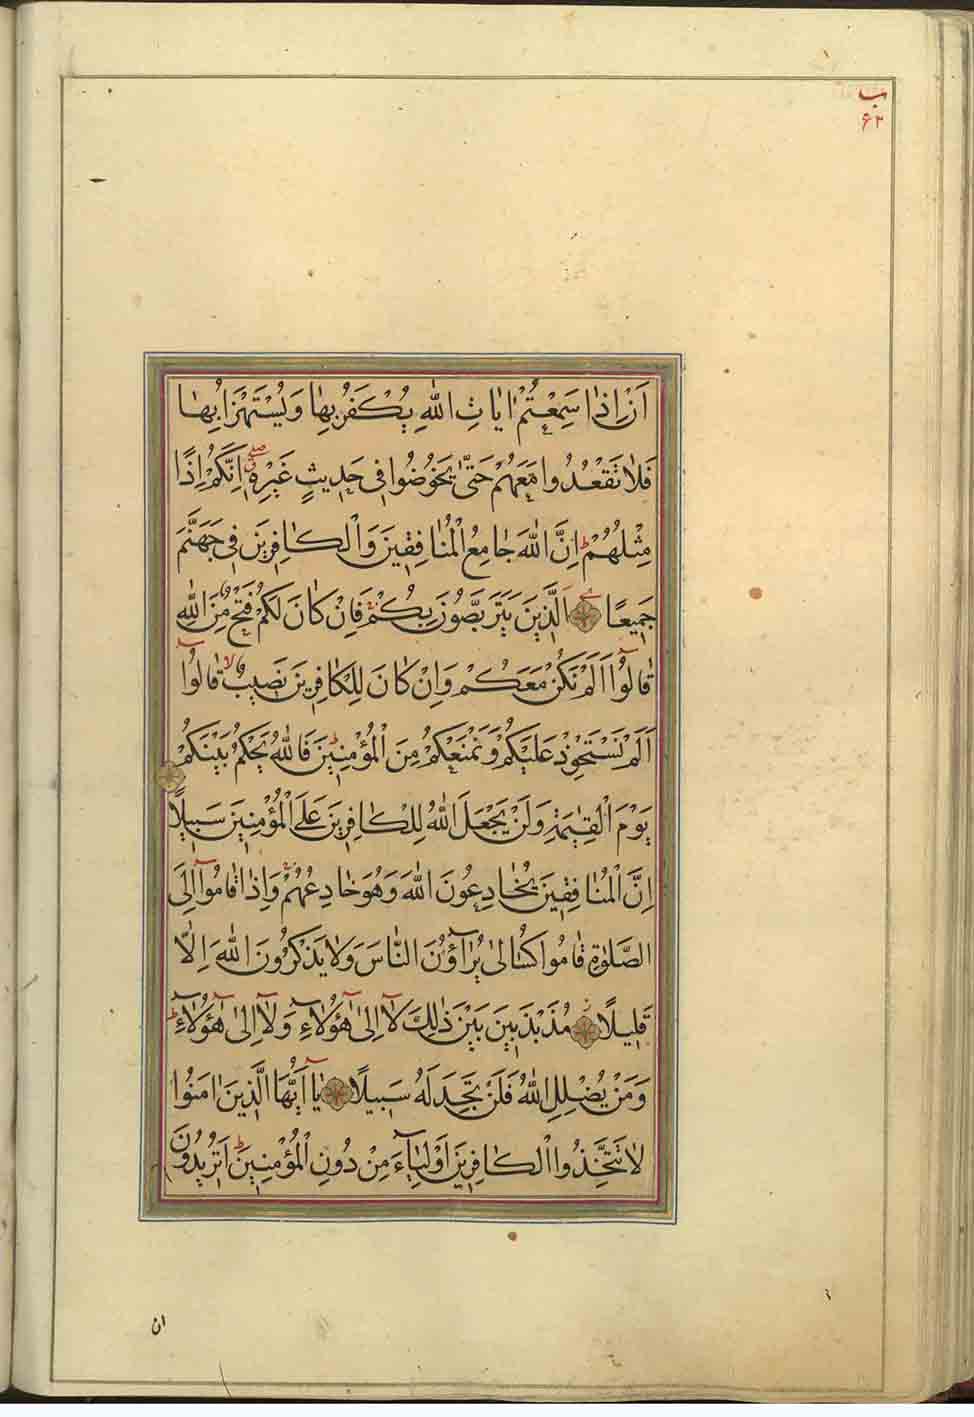 ب
۶۲
اَنْ اِذَا سَمِعْتُمْ اٰيَاتِ اللّٰهِ يُكْفَرُ بِهَا وَيُسْتَهْزَاُ بِهَا
فَلَا تَقْعُدُوا مَعَهُمْ حَتّٰى يَخُوضُوا فِى حَدِيثٍ غَيْرِهِ صلى اِنَّكُمْ اِذًا
مِثْلُهُمْ ط اِنَّ اللّٰهَ جَامِعُ الْمُنَافِقِينَ وَالْكَافِرِينَ فِى جَهَنَّمَ
جَمِيعًا اَلَّذِينَ يَتَرَبَّصُونَ بِكُمْ فَاِنْ كَانَ لَكُمْ فَتْحٌ مِنَ اللّٰهِ
قَالُوٓا اَلَمْ نَكُنْ مَعَكُمْ وَاِنْ كَانَ لِلْكَافِرِينَ نَصِيبٌ لا قَالُوٓا
اَلَمْ نَسْتَحْوِذْ عَلَيْكُمْ وَنَمْنَعْكُمْ مِنَ الْمُؤْمِنِينَ ط فَاللّٰهُ يَحْكُمُ بَيْنَكُمْ
يَوْمَ الْقِيٰمَةِ وَلَنْ يَجْعَلَ اللّٰهُ لِلْكَافِرِينَ عَلَى الْمُؤْمِنِينَ سَبِيلًا
اِنَّ الْمُنَافِقِينَ يُخَادِعُونَ اللّٰهَ وَهُوَ خَادِعُهُمْ وَاِذَا قَامُوٓا اِلَى
الصَّلٰوةِ قَامُوا كُسَالٰى يُرَآؤُنَ النَّاسَ وَلَا يَذْكُرُونَ اللّٰهَ اِلَّا
قَلِيلًا مُذَبْذَبِينَ بَيْنَ ذٰلِكَ لَآ اِلٰى هٰٓؤُلَآءِ وَلَآ اِلٰى هٰٓؤُلَآءِ ط
وَمَنْ يُضْلِلِ اللّٰهُ فَلَنْ تَجِدَ لَهُ سَبِيلًا يَآ اَيُّهَا الَّذِينَ اٰمَنُوا
لَا تَتَّخِذُوا الْكَافِرِينَ اَوْلِيَآءَ مِنْ دُونِ الْمُؤْمِنِينَ ط اَتُرِيدُونَ
ان